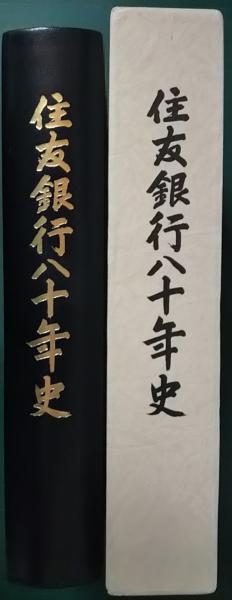 住友銀行八十年史
住友銀行八十年史